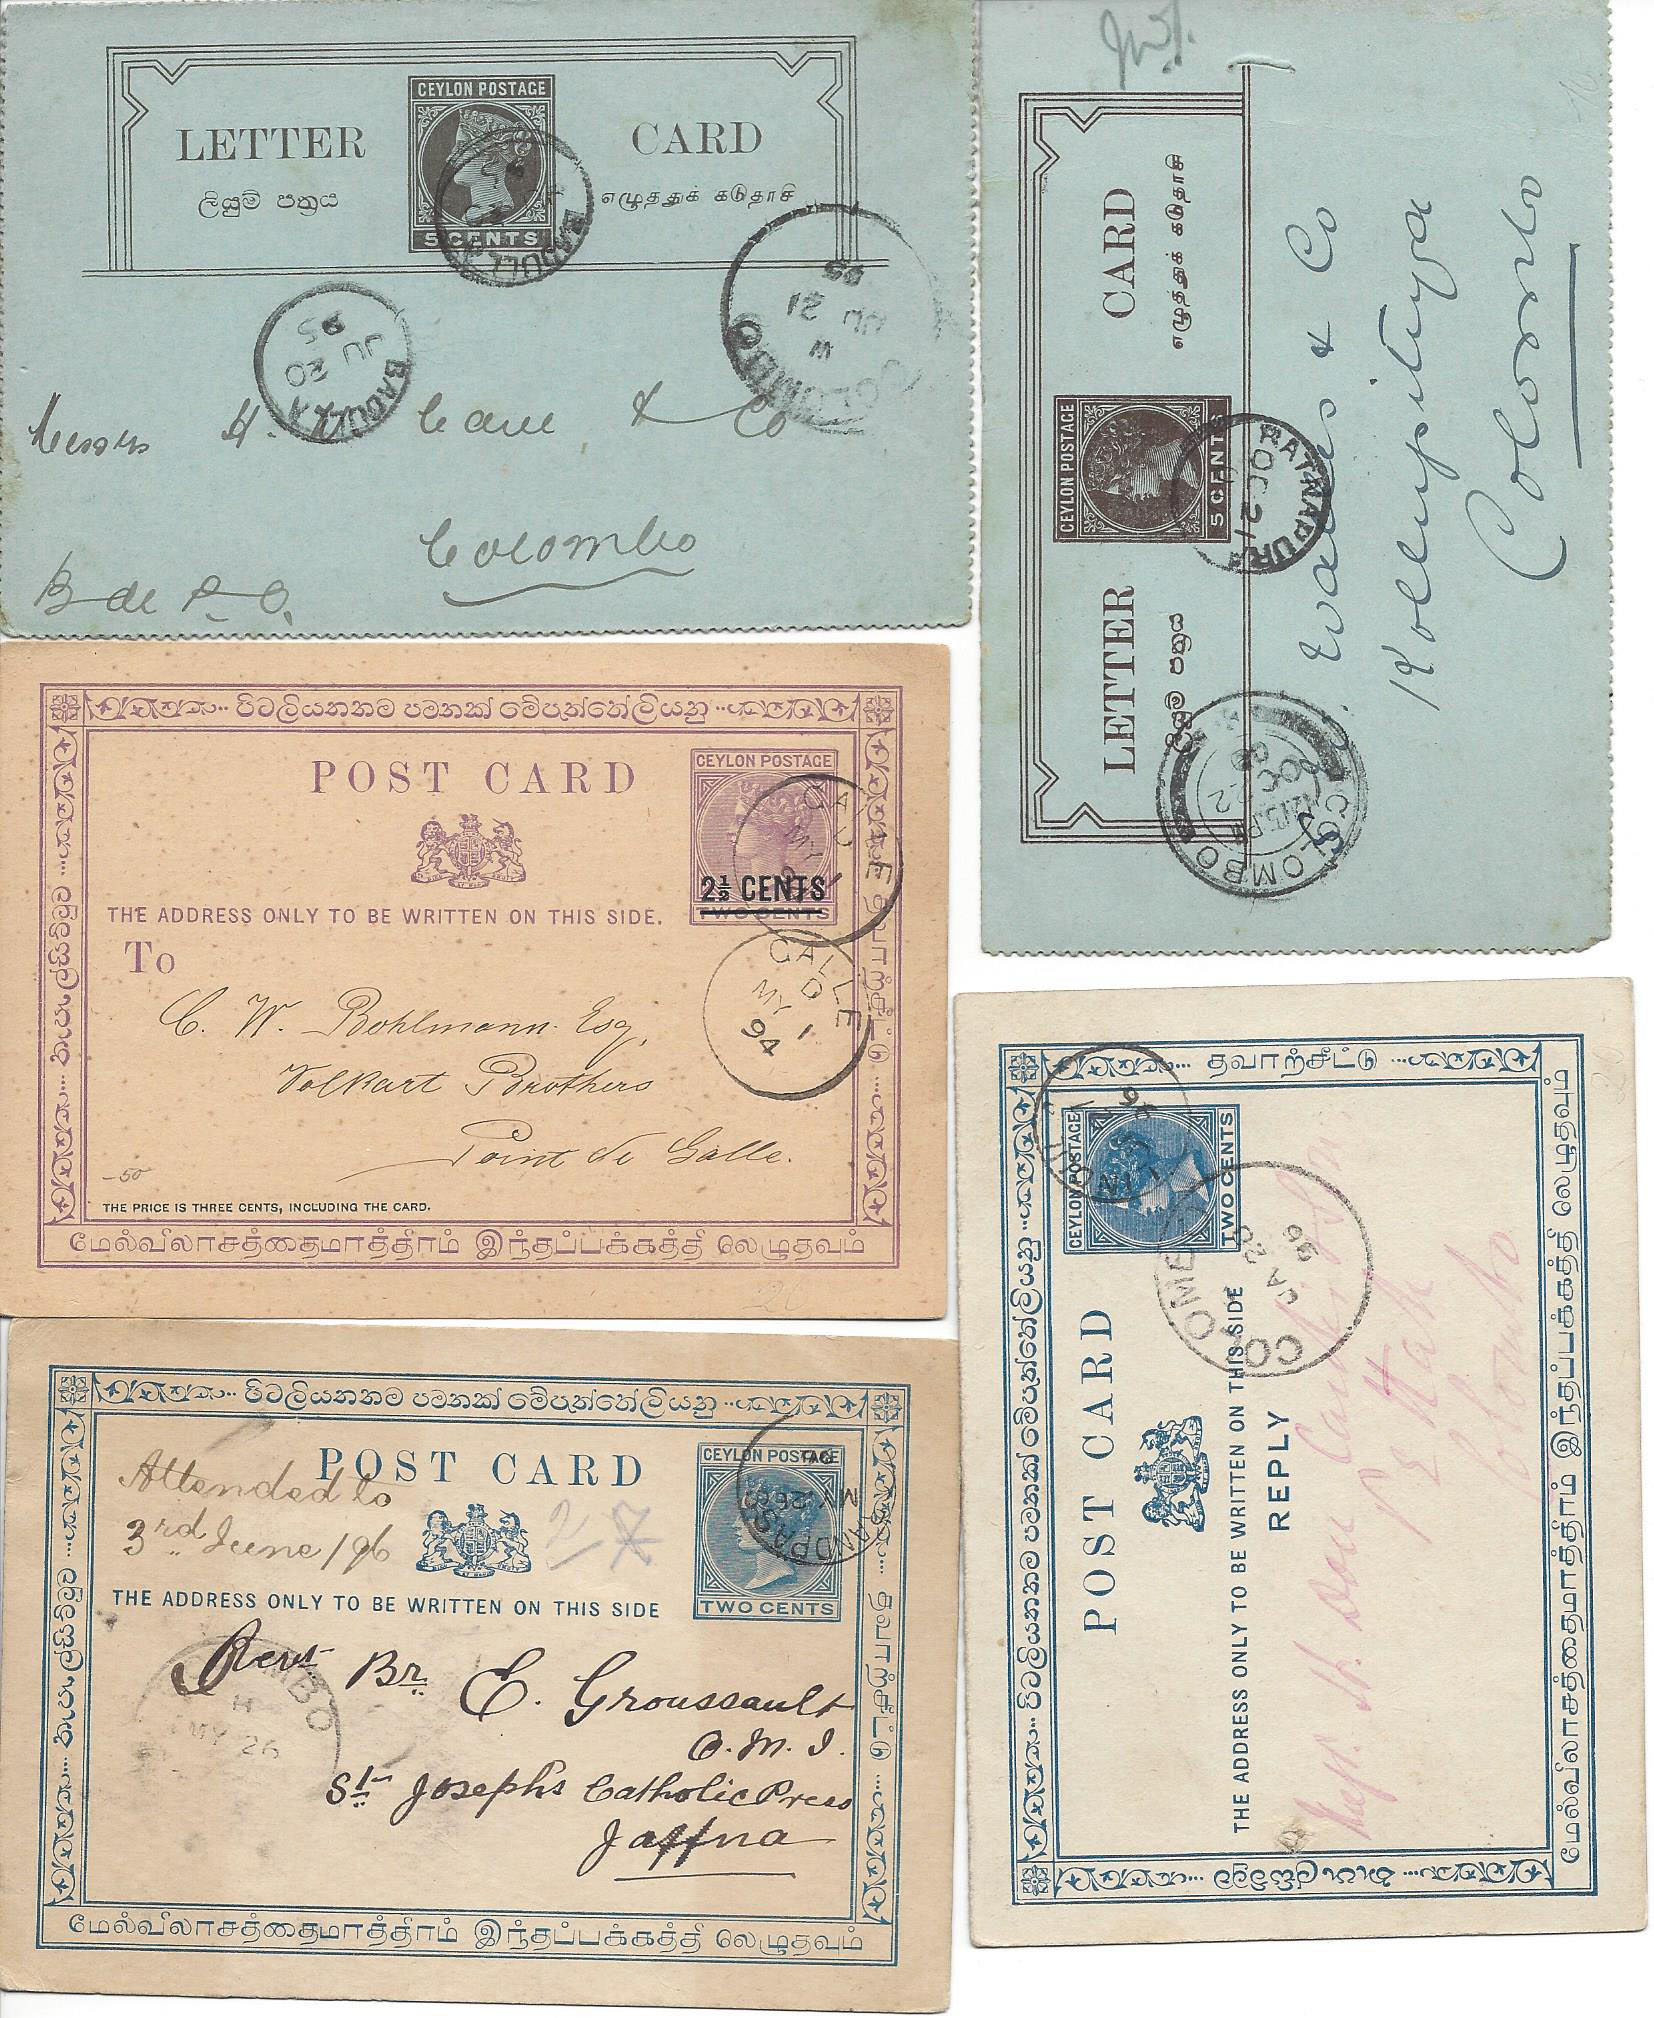 CEYLON POSTAGE
LETTER CARD
ලියුම් පත්‍රය எழுத்துக் கடுதாசி
5 CENTS
BADULLA
BADULLA
JU 20
95
COLOMBO
21
95
Messrs H. W. Cave & Co
Colombo
B de P. O.
CEYLON POSTAGE
LETTER CARD
ලියුම් පත්‍රය எழுத்துக் கடுதாசி
5 CENTS
RATNAPURA
OC 21
COLOMBO
OC 22
& Co
Kollupitiya
Colombo
පිටලියනතම පමනක් මේපැත්තේලියනු
POST CARD
CEYLON POSTAGE
2½ CENTS
TWO CENTS
THE ADDRESS ONLY TO BE WRITTEN ON THIS SIDE.
To
GALLE
MY 1
GALLE
D
MY 1
94
C. W. Bohlmann Esq,
Volkart Brothers
Point de Galle.
-50
THE PRICE IS THREE CENTS, INCLUDING THE CARD.
மேல்விலாசத்தைமாத்திரம் இந்தப்பக்கத்தி லெழுதவும்
தவாற்சீட்டு
පිටලියනතම පමනක් මේපැත්තේලියනු
POST CARD
CEYLON POSTAGE
TWO CENTS
Attended to
3rd June/96
THE ADDRESS ONLY TO BE WRITTEN ON THIS SIDE
MY 26
COLOMBO
H
MY 26
Revt Br. E. Groussault
O. M. I.
St Joseph's Catholic Press
Jaffna
தவாற்சீட்டு
மேல்விலாசத்தைமாத்திரம் இந்தப்பக்கத்தி லெழுதவும்
පිටලියනතම පමනක් මේපැත්තේලියනු
தவாற்சீட்டு
POST CARD
CEYLON POSTAGE
TWO CENTS
THE ADDRESS ONLY TO BE WRITTEN ON THIS SIDE
REPLY
COLOMBO
JA 20
96
Pettah
Colombo
மேல்விலாசத்தைமாத்திரம் இந்தப்பக்கத்தி லெழுதவும்